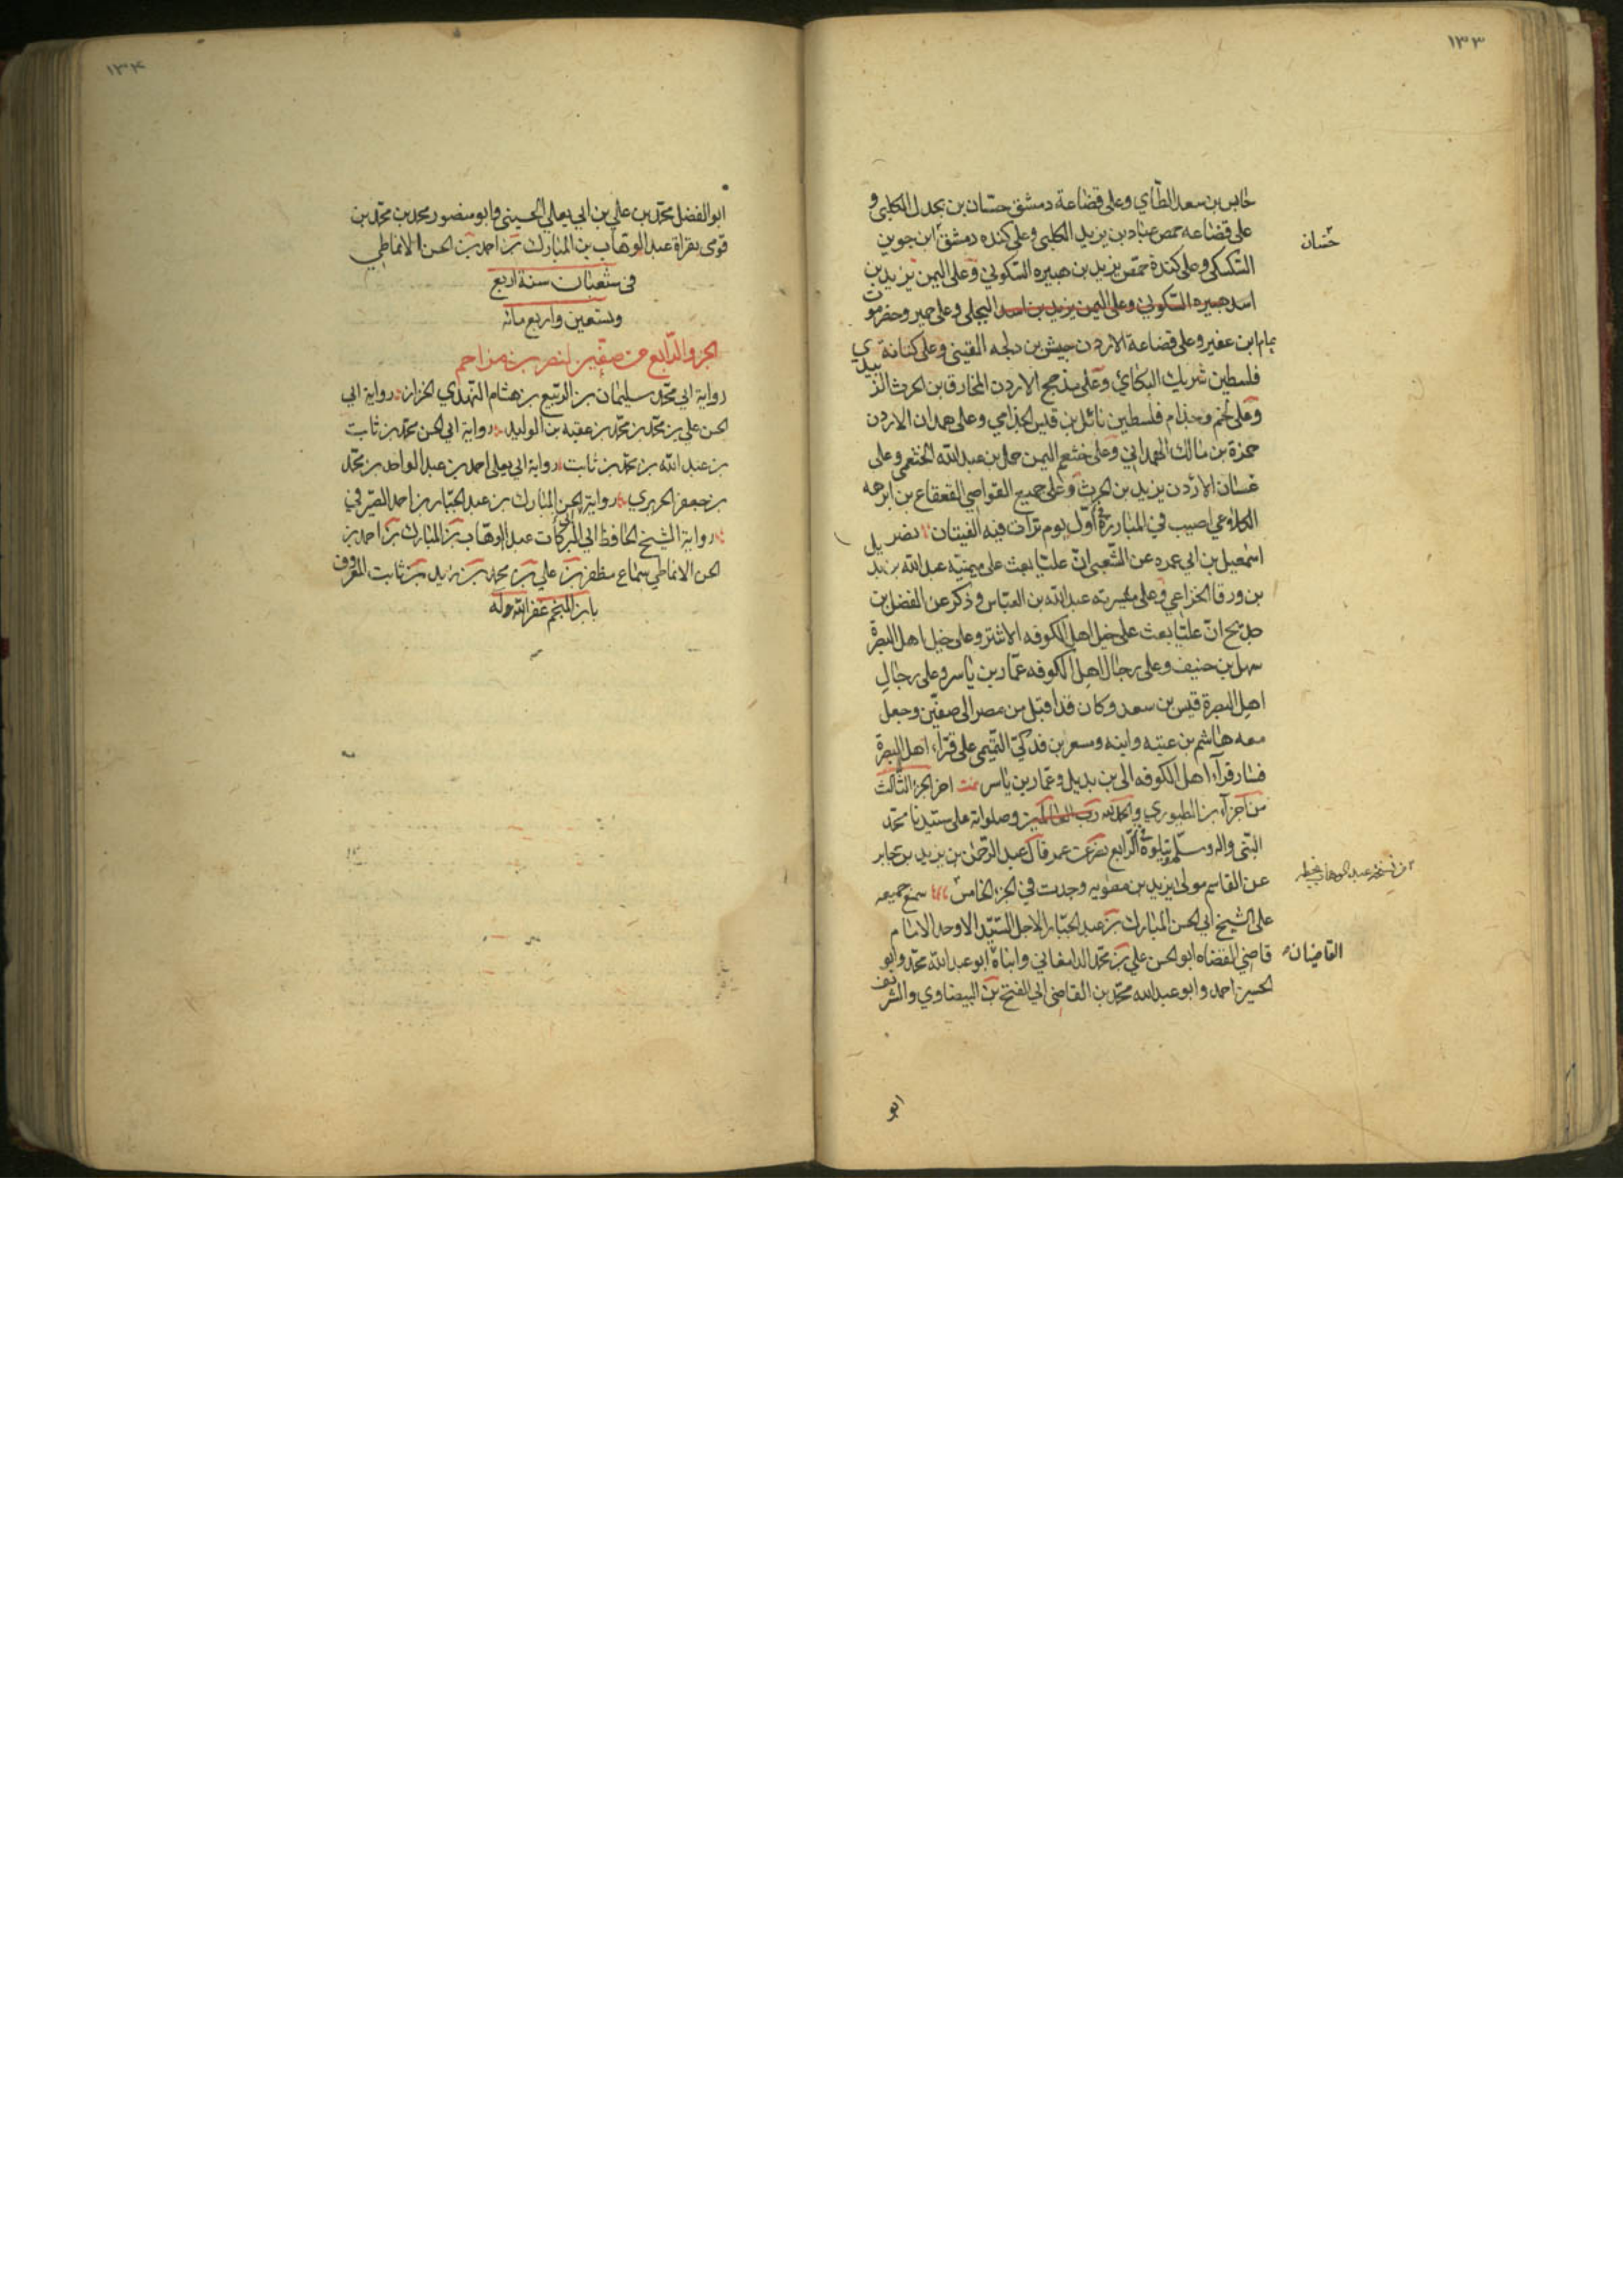 ١٣٣
حابس بن سعد الطاي وعلى قضاعة دمشق حسّان بن بحدل الكلبي و
على قضاعه حمص عباد بن يزيد الكلبي وعلى كنده دمشق ابن جوين
حسان
السّكسكي وعلى كندة حمص يزيد بن هبيره السّكوني وعلى اليمن يزيد بن
اسد هبيره السكوني وعلى اليمن يزيد بن اسد البجلي وعلى حمير وحضرموت
يمام ابن عفير وعلى قضاعة الاردن حبيش بن دلجه القيني وعلى كنانة
فلسطين شريك الكناني وعلى مذحج الاردن المخارق بن الحرث الزبيدي
وعلى لخم وجذام فلسطين ناتل بن قيس الجذامي وعلى همدان الاردن
حمزة بن مالك الهمداني وعلى خثعم اليمن حمل بن عبدالله الخثعمي وعلى
غسان الاردن يزيد بن الحرث وعلى جميع القواصي القعقاع بن ابرهه
الكلاعي اصيب في المبارزة اوّل يوم تراءت فيه الفيتان نصر
اسمعيل بن ابي عمره عن الشّعبي انّ عليّا بعث على ميمنته عبدالله بن بديل
بن ورقا الخزاعي وعلى ميسرته عبدالله بن العبّاس وذكر عن الفضل بن
حديج انّ عليّا بعث على خيل اهل الكوفه الاشتر وعلى خيل اهل البصرة
سهل بن حنيف وعلى رجال اهل الكوفه عمّار بن ياسر وعلى رجال
اهل البصرة قيس بن سعد وكان قد اقبل من مصر الى صفّين وجعل
معه هاشم بن عتبه وابنه ومسعر بن فدكي التّميمي على قرّاء اهل البصرة
فصار قرّاء اهل الكوفه الى بن بديل وعمّار بن ياسر تمت اخر الجزء الثّالث
من اجزاء بن الطيوري والحمدلله ربّ العالمين وصلواته على سيّدنا محمّد
النّبي واله وسلّم ويتلوه الرّابع نصر عن عمر قال عبد الرّحمن بن يزيد بن جابر
من نسخة عبد الوهاب بخطه
عن القاسم مولى يزيد بن معويه وجدت في الجزء الخامس سمع جميعه
على الشيخ ابي الحسن المبارك بن عبد الجبّار الاجل السّيّد الاوحد الامام
قاضي القضاه ابو الحسن علي بن محمّد الدامغاني وابناه ابو عبدالله محمّد وابو
القاضيان
الحسين احمد وابو عبدالله محمّد بن القاضي ابي الفتح بن البيضاوي والشريف
ابو
١٣۴
ابو الفضل محمّد بن علي بن ابي يعلي الحسيني وابو منصور محمد بن محمّد بن
قومي بقراة عبد الوهاب بن المبارك بن احمد بن الحسن الانماطي
في شعبان سنة اربع
وتسعين واربع مائه
الجزو الرّابع من صفّين لنصر بن مزاحم
رواية ابي محمّد سليمان بن الرّبيع بن هشام النّهدي الخزاز رواية ابي
الحسن علي بن محمّد بن محمّد بن عقبه بن الوليد رواية ابي الحسن محمّد بن ثابت
بن عبد الله بن محمّد بن ثابت رواية ابي يعلى احمد بن عبد الواحد بن محمّد
بن جعفر الحريري رواية ابي الحسن المبارك بن عبد الجبّار بن احمد الصّيرفي
رواية الشيخ الحافظ ابي البركات عبد الوهّاب بن المبارك بن احمد بن
الحسن الانماطي سماع مظفر بن علي بن محمد بن زيد بن ثابت المعروف
بابن المنجم غفر الله له